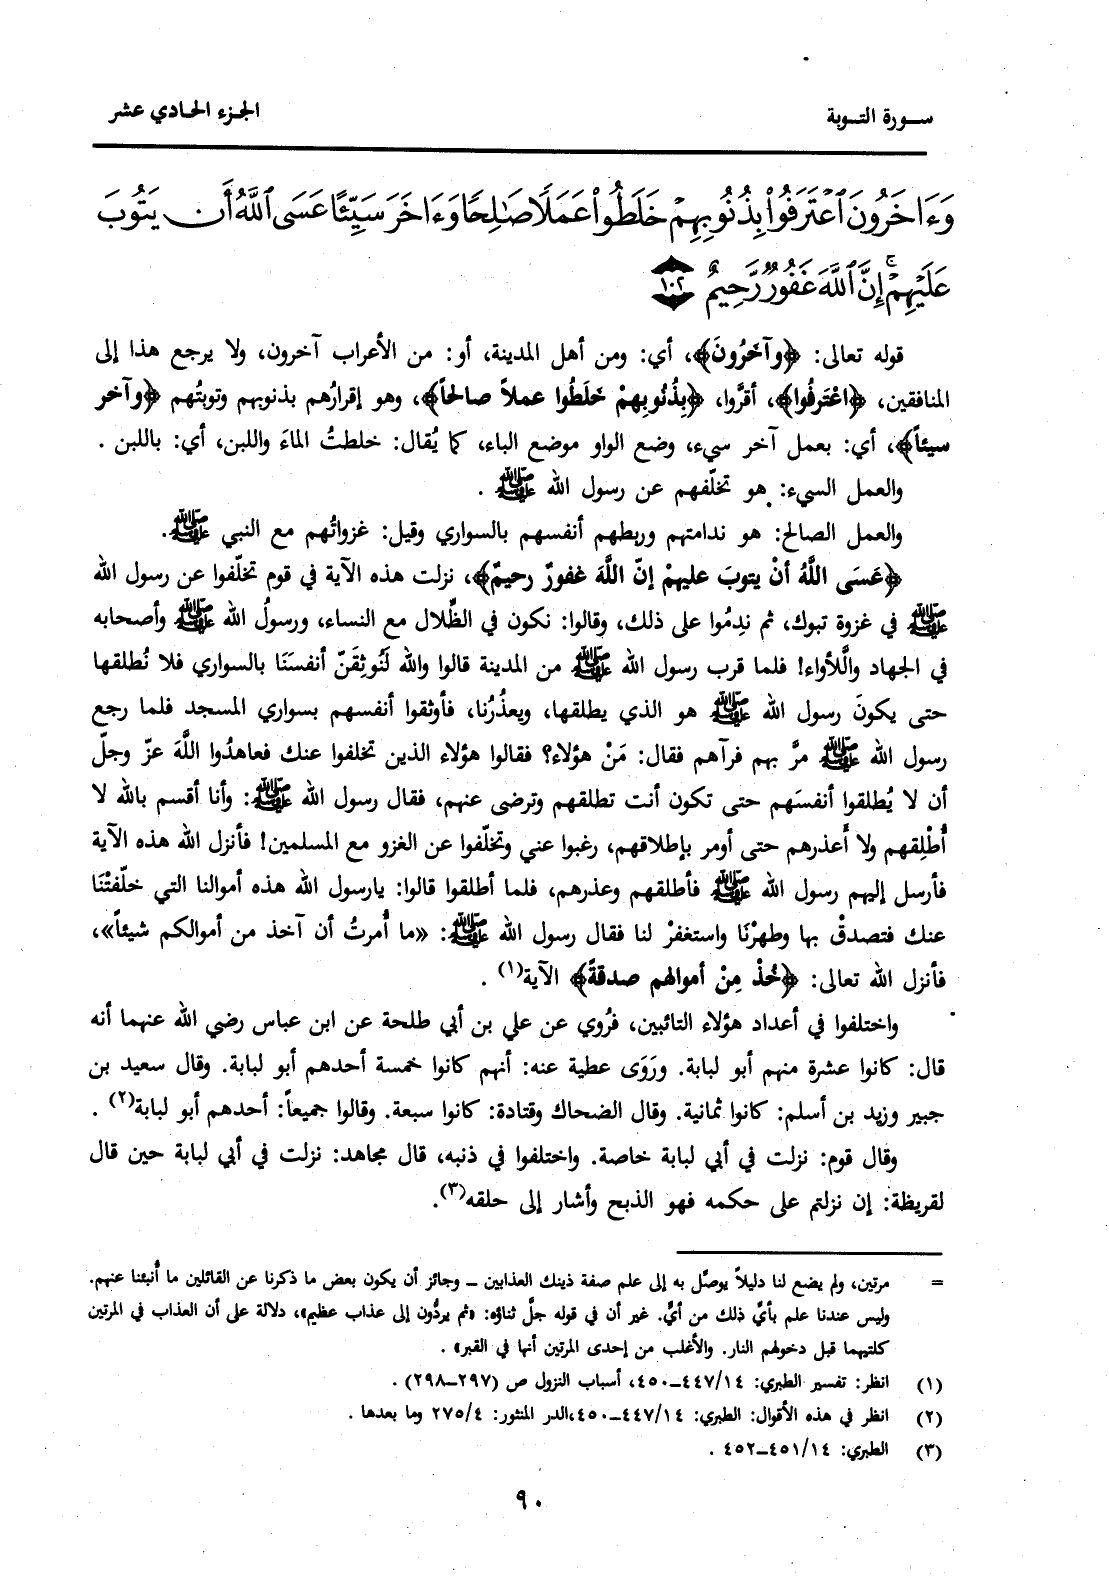 سورة التوبة
الجزء الحادي عشر
وَءَاخَرُونَ ٱعْتَرَفُوا۟ بِذُنُوبِهِمْ خَلَطُوا۟ عَمَلًا صَٰلِحًا وَءَاخَرَ سَيِّئًا عَسَى ٱللَّهُ أَن يَتُوبَ
عَلَيْهِمْ ۚ إِنَّ ٱللَّهَ غَفُورٌ رَّحِيمٌ ١٠٢
قوله تعالى: ﴿وآخَرُونَ﴾، أي: ومن أهل المدينة، أو: من الأعراب آخرون، ولا يرجع هذا إلى
المنافقين، ﴿اعْتَرفُوا﴾، أقرَّوا، ﴿بِذُنُوبِهِمْ خَلَطُوا عملاً صالحاً﴾، وهو إقرارُهم بذنوبهم وتوبتُهم ﴿وآخر
سيئاً﴾، أي: بعمل آخر سيء، وضع الواو موضع الباء، كما يُقال: خلطتُ الماءَ واللبن، أي: باللبن .
والعمل السيء: هو تخلّفهم عن رسول الله ﷺ .
والعمل الصالح: هو ندامتهم وربطهم أنفسهم بالسواري وقيل: غزواتُهم مع النبي ﷺ.
﴿عَسَى اللَّهُ أنْ يتوبَ عليهمْ إنّ اللَّهَ غفورٌ رحيمٌ﴾، نزلت هذه الآية في قوم تخلّفوا عن رسول الله
ﷺ في غزوة تبوك، ثم ندِمُوا على ذلك، وقالوا: نكون في الظِّلال مع النساء، ورسولُ الله ﷺ وأصحابه
في الجهاد واللَّأواء! فلما قرب رسول الله ﷺ من المدينة قالوا والله لَنُوثِقَنّ أنفسَنَا بالسواري فلا نُطلقها
حتى يكونَ رسول الله ﷺ هو الذي يطلقها، ويعذُرُنا، فأوثقوا أنفسهم بسواري المسجد فلما رجع
رسول الله ﷺ مرَّ بهم فرآهم فقال: مَنْ هؤلاء؟ فقالوا هؤلاء الذين تخلفوا عنك فعاهدُوا اللَّهَ عزّ وجلّ
أن لا يُطلقوا أنفسَهم حتى تكون أنت تطلقهم وترضى عنهم، فقال رسول الله ﷺ: وأنا أقسم بالله لا
أُطْلِقهم ولا أَعذرهم حتى أومر بإطلاقهم، رغبوا عني وتخلّفوا عن الغزو مع المسلمين! فأنزل الله هذه الآية
فأرسل إليهم رسول الله ﷺ فأطلقهم وعذرهم، فلما أطلقوا قالوا: يارسول الله هذه أموالنا التي خلّفتْنَا
عنك فتصدقْ بها وطهرْنَا واستغفرْ لنا فقال رسول الله ﷺ: «ما أُمرتُ أن آخذ من أموالكم شيئاً»،
فأنزل الله تعالى: ﴿خُذْ مِنْ أموالهم صدقةً﴾ الآية(١) .
واختلفوا في أعداد هؤلاء التائبين، فرُوي عن علي بن أبي طلحة عن ابن عباس رضي الله عنهما أنه
قال: كانوا عشرة منهم أبو لبابة. ورَوَى عطية عنه: أنهم كانوا خمسة أحدهم أبو لبابة. وقال سعيد بن
جبير وزيد بن أسلم: كانوا ثمانية. وقال الضحاك وقتادة: كانوا سبعة. وقالوا جميعاً: أحدهم أبو لبابة(٢) .
وقال قوم: نزلت في أبي لبابة خاصة. واختلفوا في ذنبه، قال مجاهد: نزلت في أبي لبابة حين قال
لقريظة: إن نزلتم على حكمه فهو الذبح وأشار إلى حلقه(٣).
= مرتين، ولم يضع لنا دليلاً يوصَّل به إلى علم صفة ذينك العذابين ــ وجائز أن يكون بعض ما ذكرنا عن القائلين ما أُنبئنا عنهم.
وليس عندنا علم بأيِّ ذلك من أيٍّ. غير أن في قوله جلَّ ثناؤه: «ثم يردُّون إلى عذاب عظيم»، دلالة على أن العذاب في المرتين
كلتيهما قبل دخولهم النار. والأغلب من إحدى المرتين أنها في القبر» .
(١) انظر: تفسير الطبري: ٤٤٧/١٤ــ٤٥٠، أسباب النزول ص (٢٩٧ــ٢٩٨) .
(٢) انظر في هذه الأقوال: الطبري: ٤٤٧/١٤ــ٤٥٠،الدر المنثور: ٢٧٥/٤ وما بعدها .
(٣) الطبري: ٤٥١/١٤ــ٤٥٢ .
٩٠